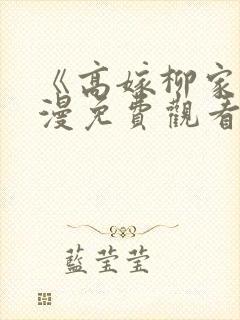 《高嫁柳家
漫免費觀看
藍莹莹